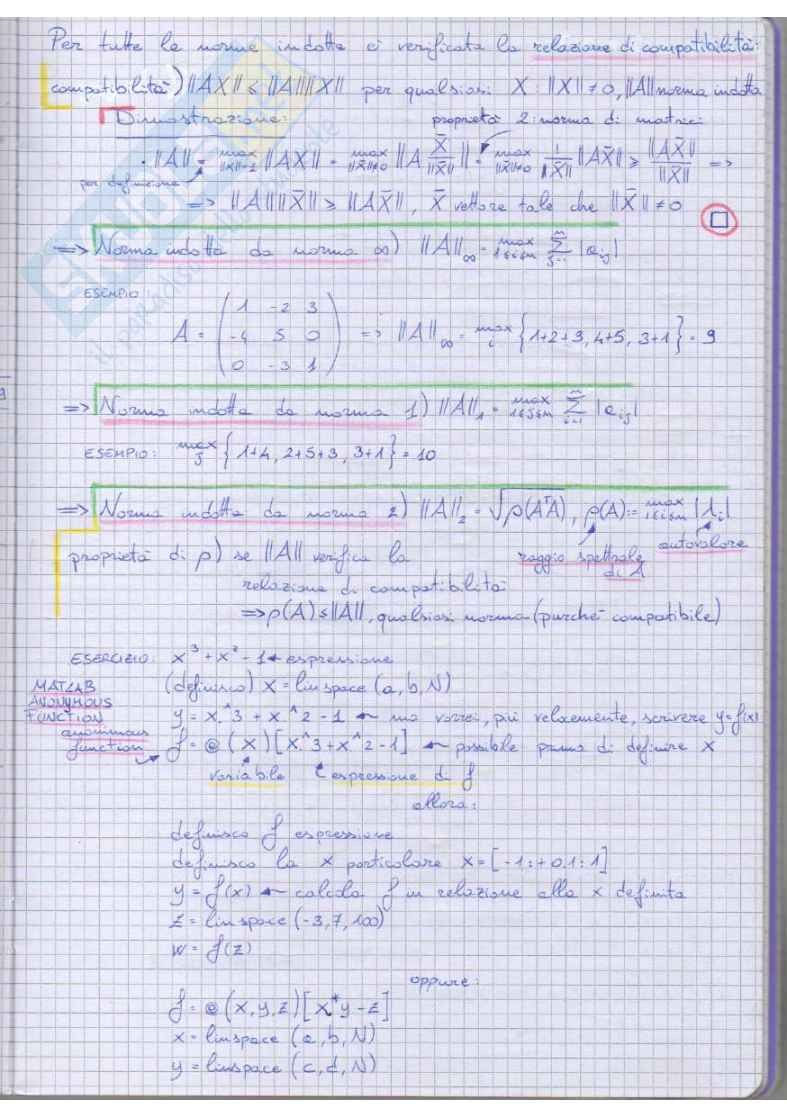 Per tutte le norme indotte è verificata la relazione di compatibilità:
compatibilità) ||AX|| ≤ ||A|| ||X|| per qualsiasi X : ||X|| ≠ 0, ||A|| norma indotta
Dimostrazione: proprietà 2: norma di matrici
• ||A|| = max ||X||=1 ||AX|| = max ||X̄||≠0 ||A X̄/||X̄|| || = max ||X̄||≠0 1/||X̄|| ||AX̄|| ≥ ||AX̄||/||X̄|| =>
per definizione
=> ||A|| ||X̄|| ≥ ||AX̄||, X̄ vettore tale che ||X̄|| ≠ 0
=> Norma indotta da norma ∞) ||A||∞ = max 1≤i≤m Σ j=1 n |a_ij|
ESEMPIO
A = ( 1 -2 3
-4 5 0
0 -3 1 ) => ||A||∞ = max i {1+2+3, 4+5, 3+1} = 9
=> Norma indotta da norma 1) ||A||₁ = max 1≤j≤n Σ i=1 m |a_ij|
ESEMPIO: max j {1+4, 2+5+3, 3+1} = 10
=> Norma indotta da norma 2) ||A||₂ = √ρ(AᵀA), ρ(A) := max 1≤i≤m |λ_i|
autovalore
proprietà di ρ) se ||A|| verifica la raggio spettrale di A
relazione di compatibilità
=> ρ(A) ≤ ||A||, qualsiasi norma (purché compatibile)
ESERCIZIO: x³ + x² - 1 ← espressione
MATLAB (definisco) x = linspace (a, b, N)
ANONYMOUS FUNCTION y = x.^3 + x.^2 - 1 ← ma vorrei, più velocemente, scrivere y=f(x)
anonimous function f = @ (x) [x.^3 + x.^2 - 1] ← possibile prima di definire x
variabile espressione di f
allora:
definisco f espressione
definisco la x particolare x = [-1:+0.1:1]
y = f(x) ← calcola f in relazione alla x definita
z = linspace (-3, 7, 100)
w = f(z)
oppure:
f = @ (x, y, z) [x*y - z]
x = linspace (a, b, N)
y = linspace (c, d, N)
il paradiso dello studente